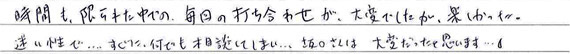 時間も、限られた中での、毎回の打ち合わせが、大変でしたが、楽しかった。
迷い性で…、すぐに、何でも相談してしまい…、坂口さんは大変だったと思います…。